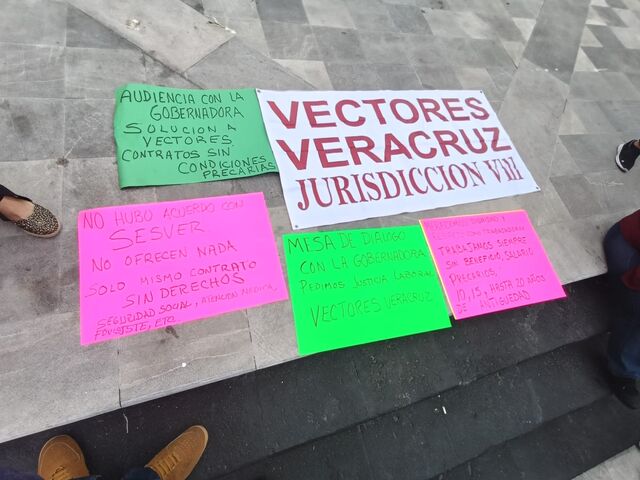 AUDIENCIA CON LA
GOBERNADORA
SOLUCION A
VECTORES
CONTRATOS SIN
CONDICIONES
PRECARIAS
VECTORES
VERACRUZ
JURISDICCION VIII
NO HUBO ACUERDO CON
SESVER
NO OFRECEN NADA
SOLO MISMO CONTRATO
SIN DERECHOS
SEGURIDAD SOCIAL, ATENCION MEDICA,
FOVISSSTE, ETC
MESA DE DIALOGO
CON LA GOBERNADORA
PEDIMOS JUSTICIA LABORAL
VECTORES VERACRUZ
COMO TRABAJADORES
TRABAJAMOS SIEMPRE
SIN BENEFICIO, SALARIO
PRECARIOS,
10, 15, HASTA 20 AÑOS
DE ANTIGUEDAD